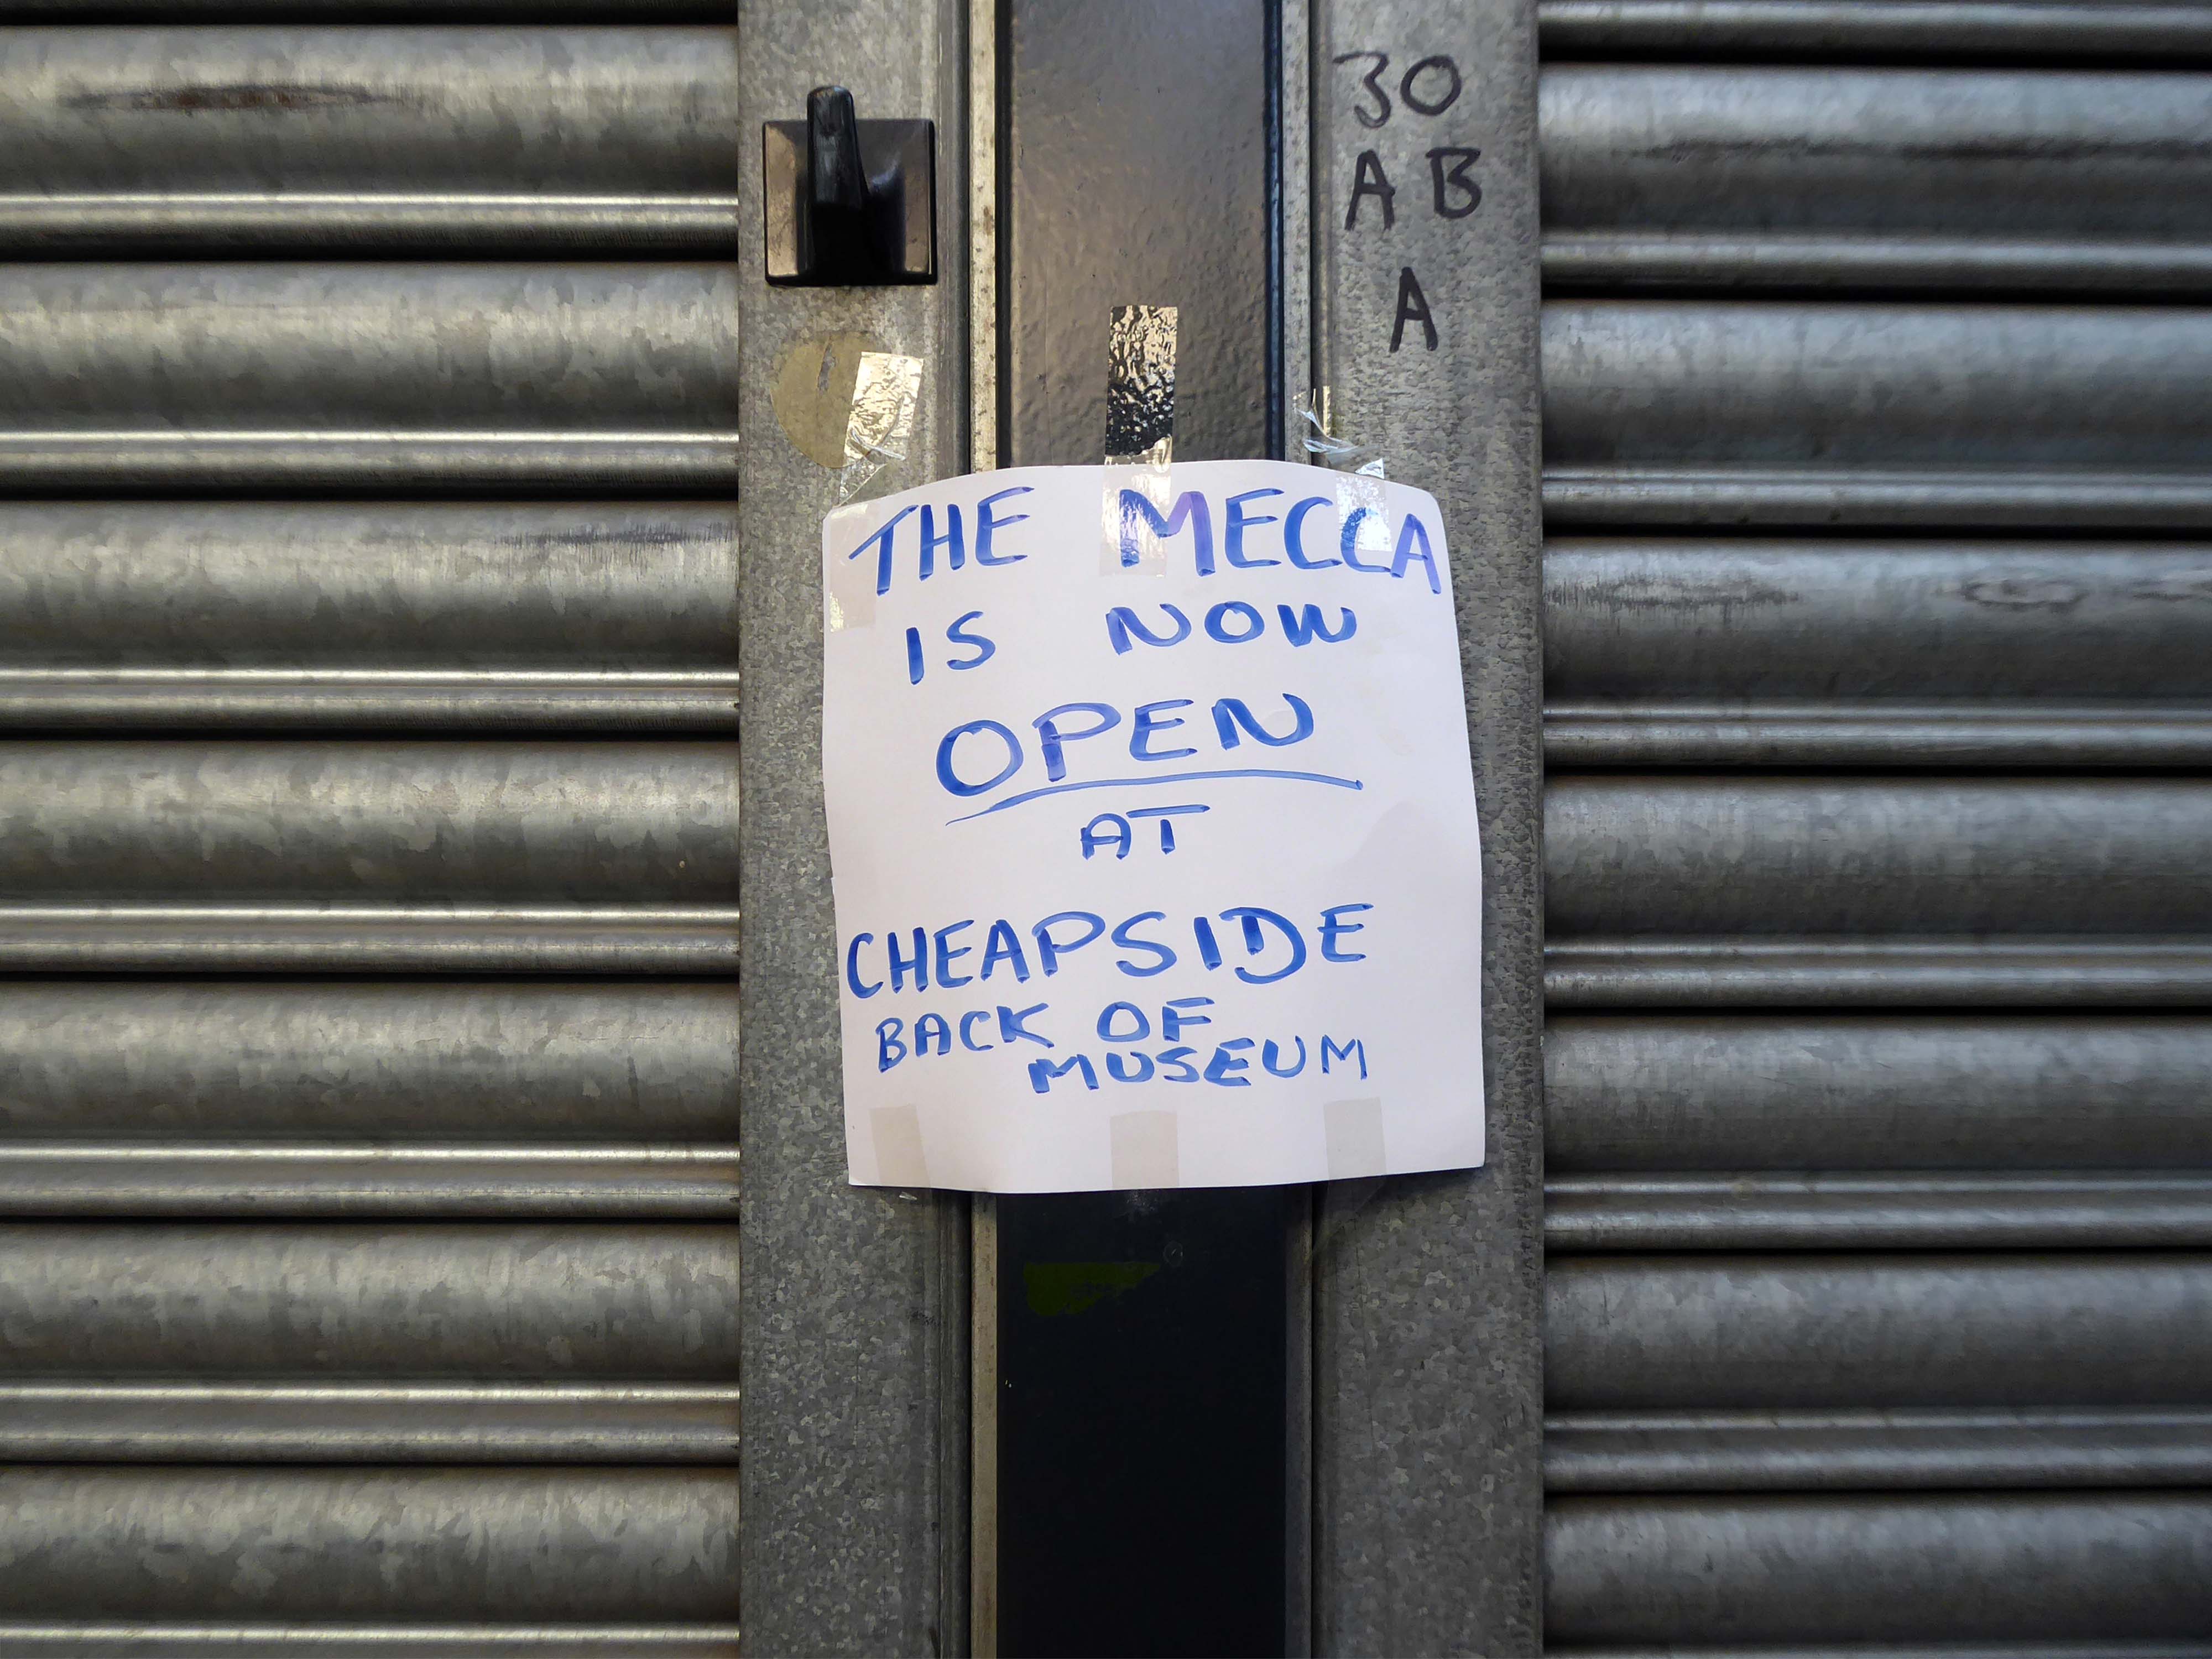 30
A B
A
THE MECCA
IS NOW
OPEN
AT
CHEAPSIDE
BACK OF
MUSEUM